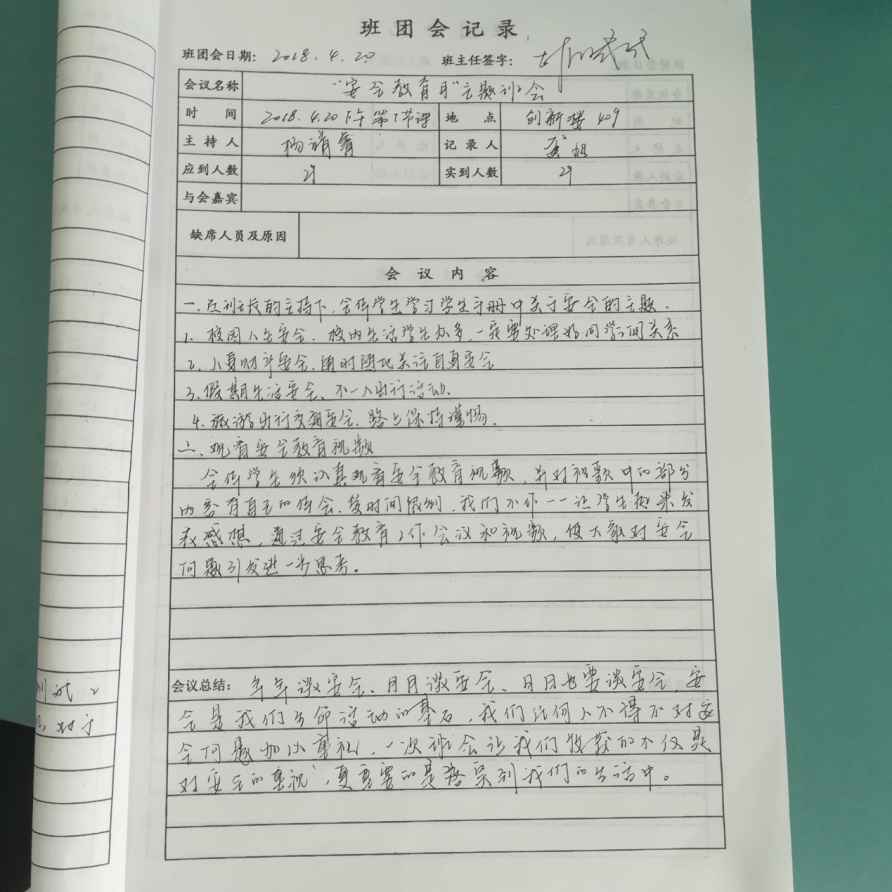 班团会记录
班团会日期： 2018.4.20 班主任签字：
会议名称 “安全教育月”主题班会
时 间 2018.4.20下午第1节课 地 点 创新楼409
主 持 人 杨清 记 录 人
应到人数 29 实到人数 29
与会嘉宾
缺席人员及原因
会 议 内 容
一.在班长的主持下,全体学生学习学生手册中关于安全的主题.
1. 校园人生安全.校内生活学生众多,一定要处理好同学间关系
2. 人身财产安全.随时随地关注自身安全
3. 假期生活安全、不一人出行活动.
4. 旅游出行交通安全.路上保持谨惕.
二.观看安全教育视频
全体学生须认真观看安全教育视频,并对视频中的部分
内容有自己的体会.受时间限制,我们不作一一让学生起来发
表感想,通过安全教育工作会议和视频,使大家对安全
问题引发进一步思考。
会议总结： 年年谈安全、月月谈安全、日日也要谈安全,安
全是我们生命活动的基石,我们任何人不得不对安
全问题加以重视,一次班会让我们收获的不仅是
对安全的重视,更重要的是落实到我们的生活中。
对于